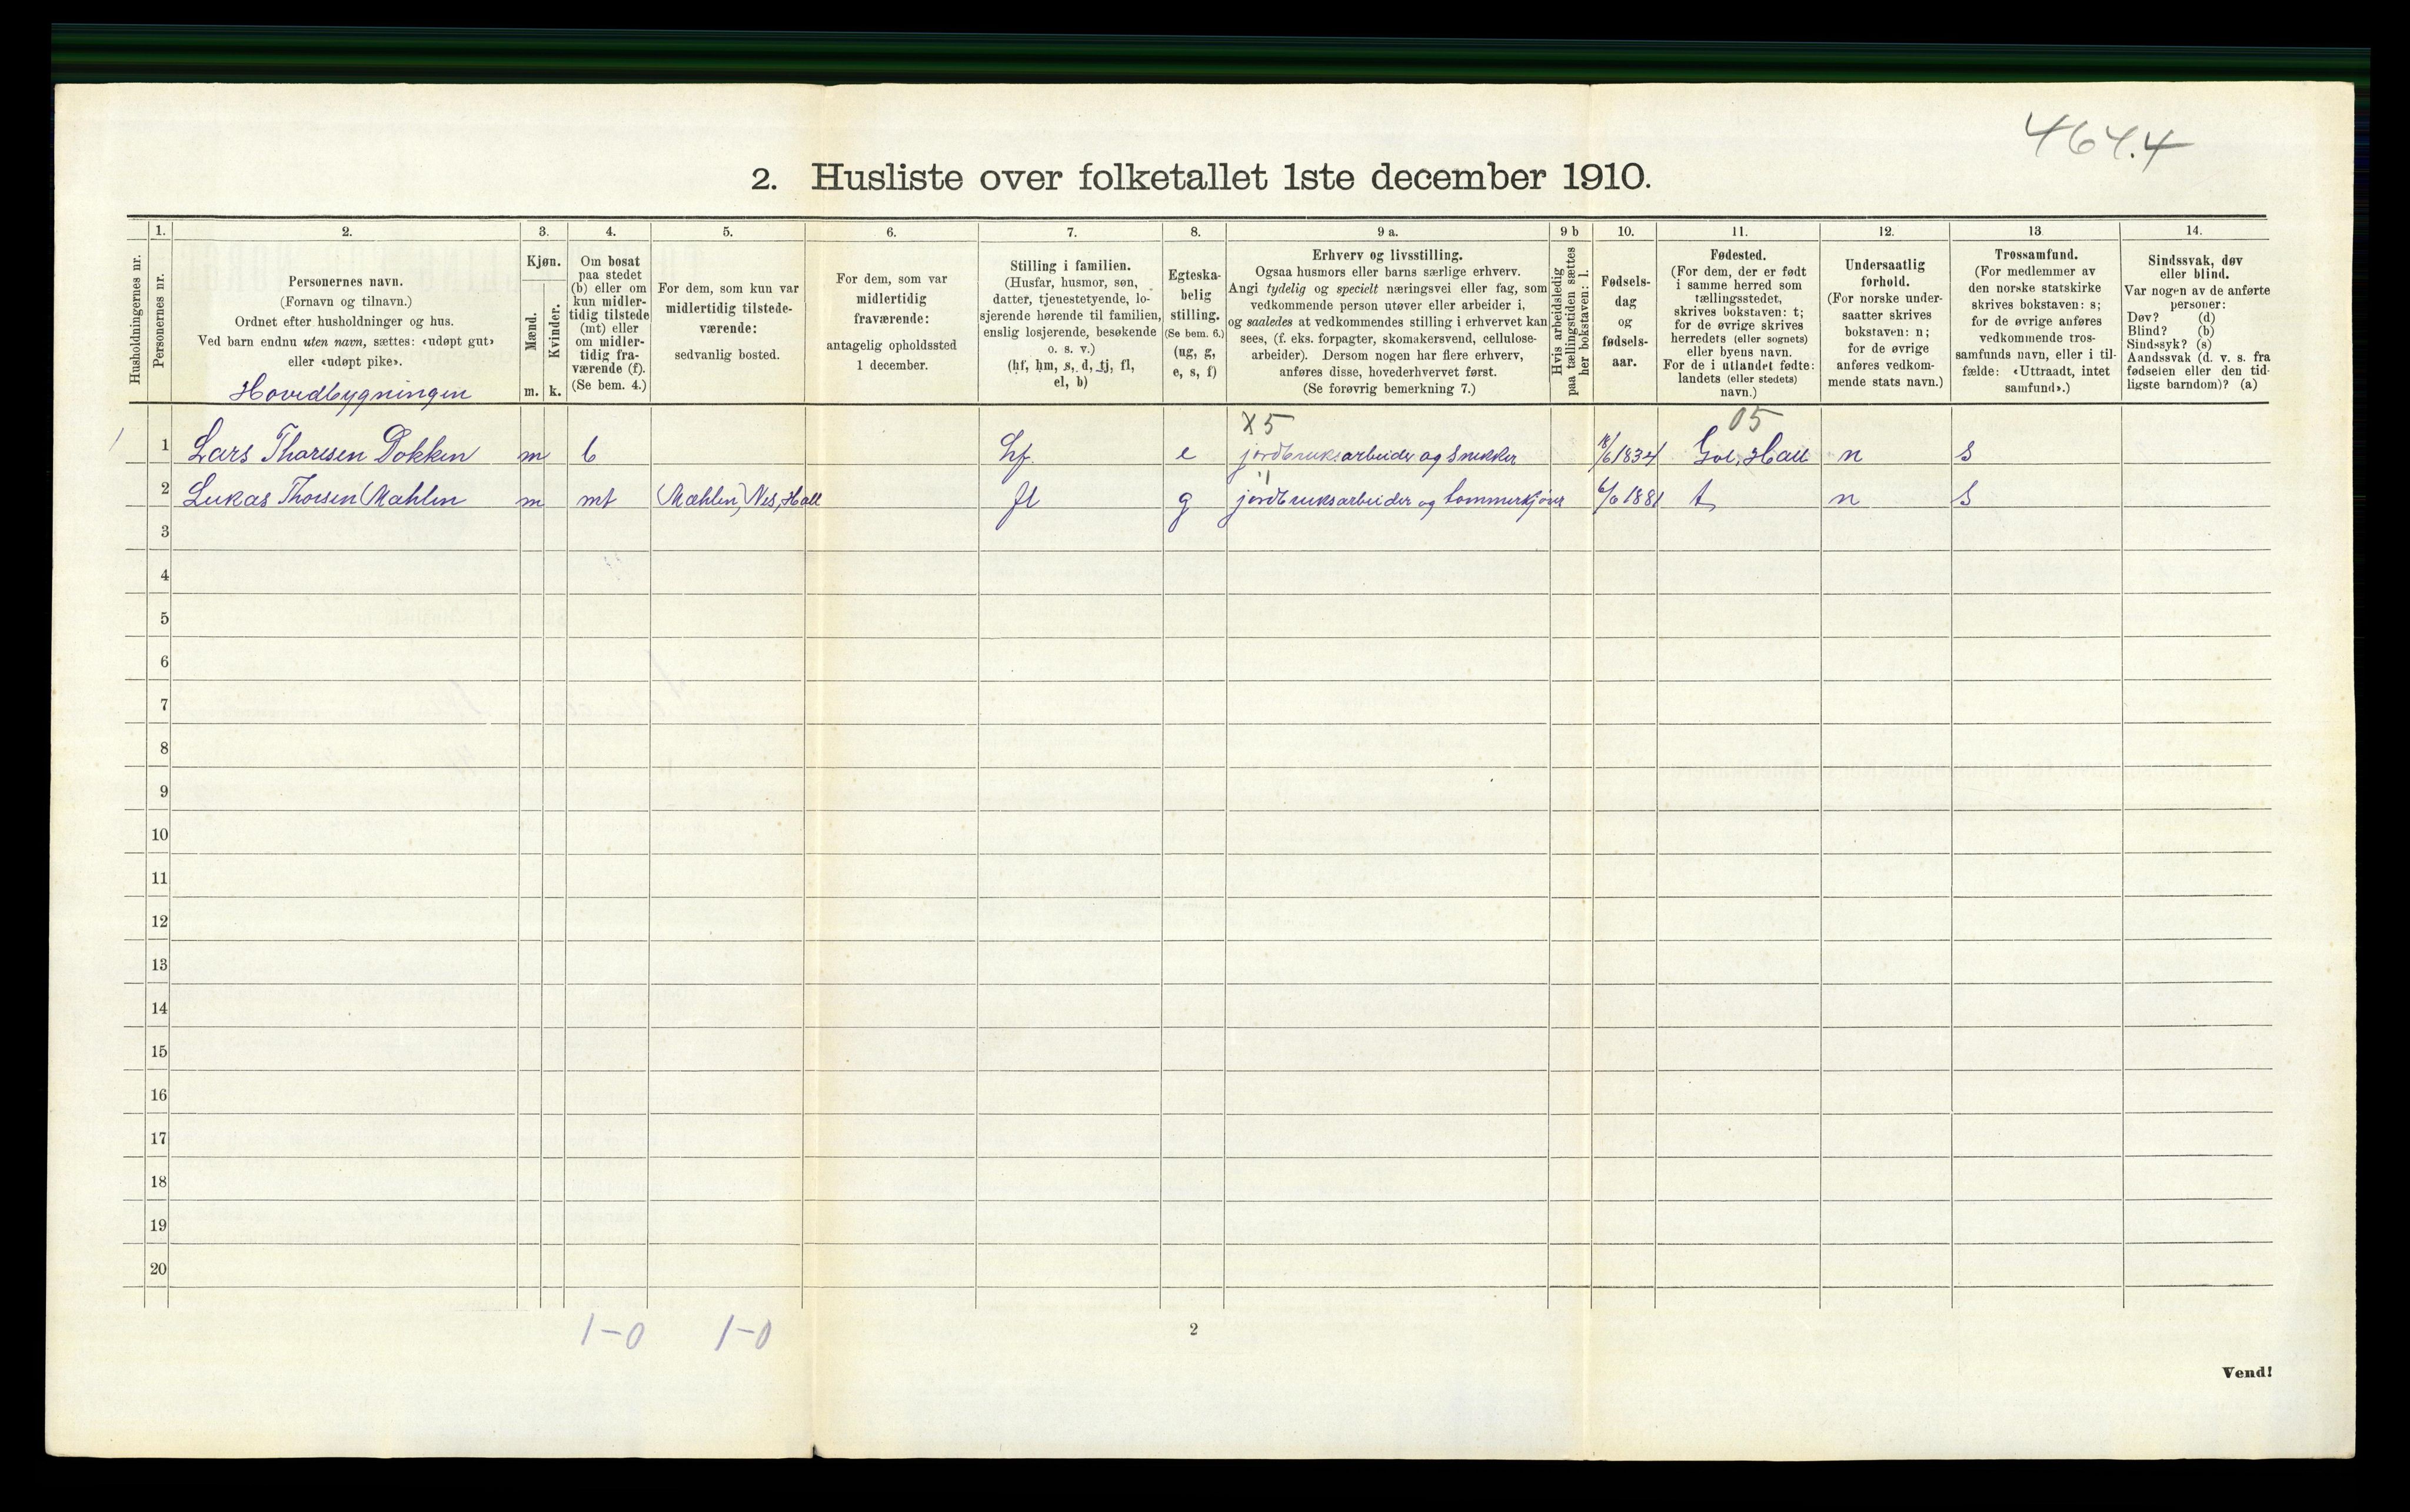 464.4
2. Husliste over folketallet 1ste december 1910.
Husholdningernes nr.
1.
Personernes nr.
2.
Personernes navn.
(Fornavn og tilnavn.)
Ordnet efter husholdninger og hus.
Ved barn endnu uten navn, sættes: «udøpt gut»
eller «udøpt pike».
Hovedbygningen
3.
Kjøn.
Mænd.
Kvinder.
m. k.
4.
Om bosat
paa stedet
(b) eller om
kun midler-
tidig tilstede
(mt) eller
om midler-
tidig fra-
værende (f).
(Se bem. 4.)
5.
For dem, som kun var
midlertidig tilstede-
værende:
sedvanlig bosted.
6.
For dem, som var
midlertidig
fraværende:
antagelig opholdssted
1 december.
7.
Stilling i familien.
(Husfar, husmor, søn,
datter, tjenestetyende, lo-
sjerende hørende til familien,
enslig losjerende, besøkende
o. s. v.)
(hf, hm, s, d, tj, fl,
el, b)
8.
Egteska-
belig
stilling.
(Se bem. 6.)
(ug, g,
e, s, f)
9 a.
Erhverv og livsstilling.
Ogsaa husmors eller barns særlige erhverv.
Angi tydelig og specielt næringsvei eller fag, som
vedkommende person utøver eller arbeider i,
og saaledes at vedkommendes stilling i erhvervet kan
sees, (f. eks. forpagter, skomakersvend, cellulose-
arbeider). Dersom nogen har flere erhverv,
anføres disse, hovederhvervet først.
(Se forøvrig bemerkning 7.)
9 b
Hvis arbeidsledig
paa tællingstiden sættes
her bokstaven: l.
10.
Fødsels-
dag
og
fødsels-
aar.
11.
Fødested.
(For dem, der er født
i samme herred som
tællingsstedet,
skrives bokstaven: t;
for de øvrige skrives
herredets (eller sognets)
eller byens navn.
For de i utlandet fødte:
landets (eller stedets)
navn.)
12.
Undersaatlig
forhold.
(For norske under-
saatter skrives
bokstaven: n;
for de øvrige
anføres vedkom-
mende stats navn.)
13
Trossamfund.
(For medlemmer av
den norske statskirke
skrives bokstaven: s;
for de øvrige anføres
vedkommende tros-
samfunds navn, eller i til-
fælde: «Uttraadt, intet
samfund».)
14.
Sindssvak, døv
eller blind.
Var nogen av de anførte
personer:
Døv? (d)
Blind? (b)
Sindssyk? (s)
Aandssvak (d. v. s. fra
fødselen eller den tid-
ligste barndom)? (a)
X5 05
1 1 Lars Thoresen Dokken m b hf. e jordbruksarbeider og snekker 18/6 1834 Gol, Hall n s
2 Lukas Thorsen Mæhlen m mt Mæhlen, Nes, Hall fl g jordbruksarbeider og tømmerkjører 6/6 1881 t n s
3
4
5
6
7
8
9
10
11
12
13
14
15
16
17
18
19
20
1-0 1-0
2
Vend!